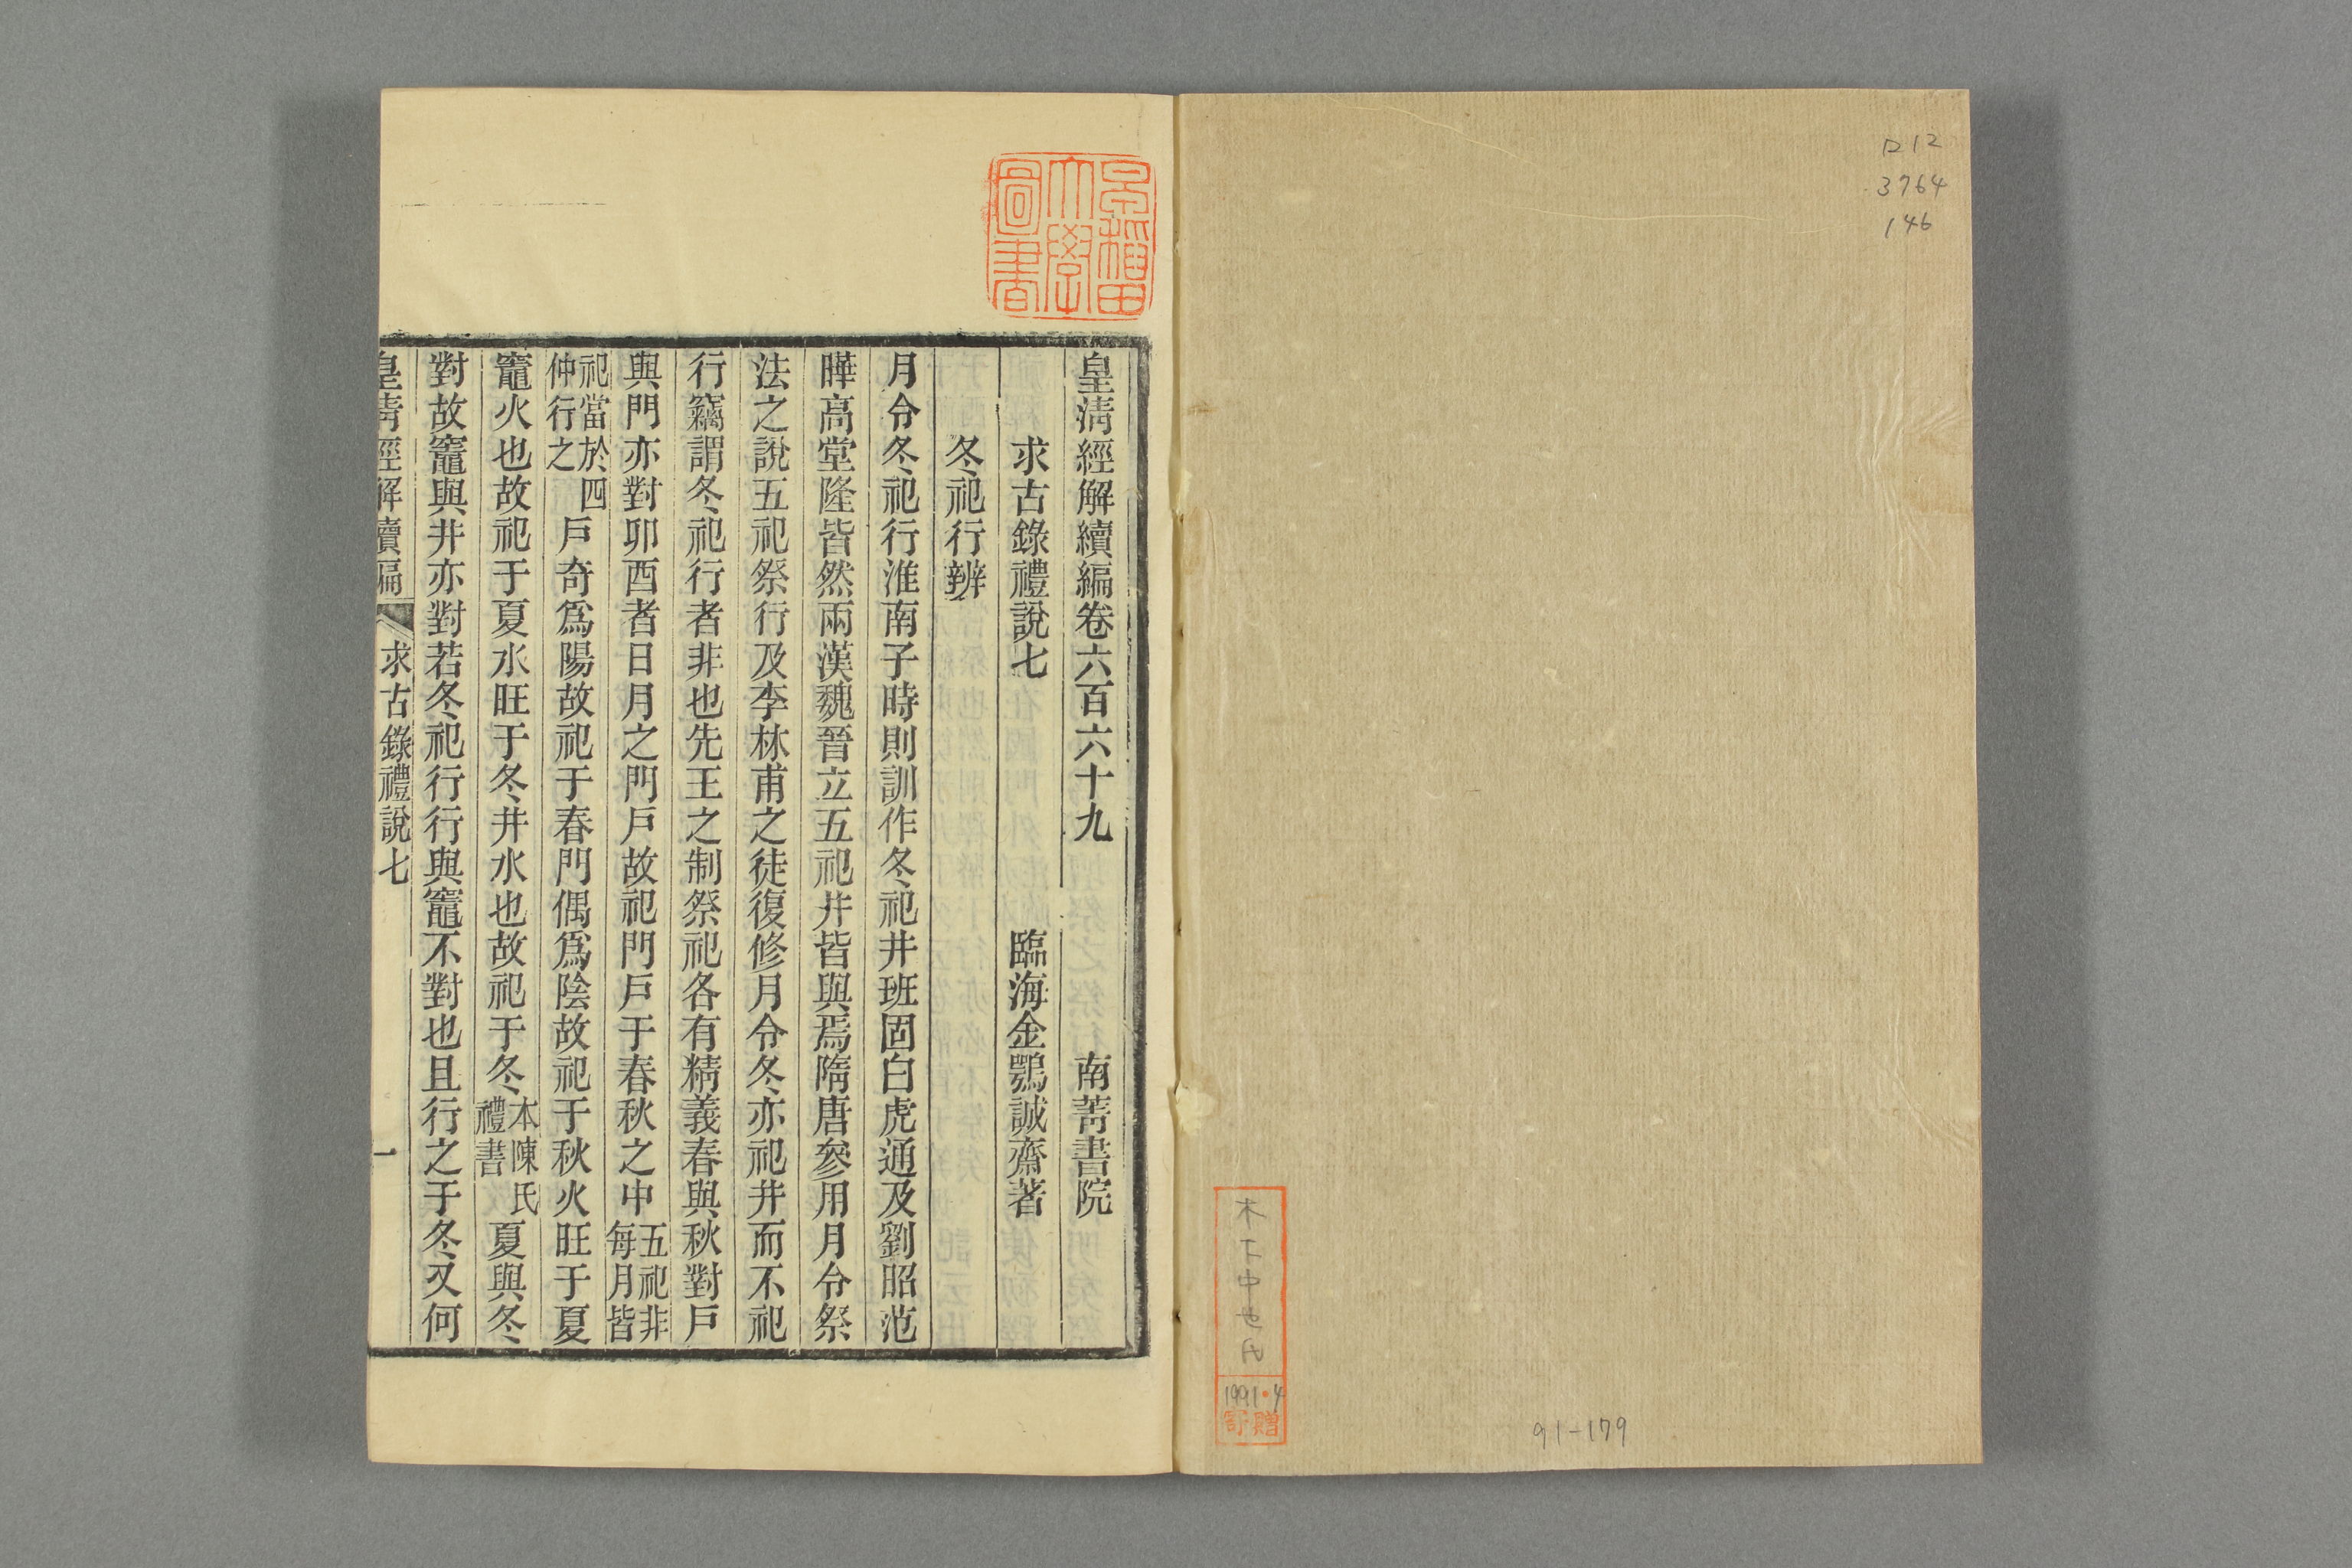 ロ12
3764
146
木下中也氏
1991・4
寄贈
91-179
早稲田
大學
圖書
皇淸經解續編卷六百六十九 南菁書院
求古錄禮說七 臨海金鶚誠齋著
冬祀行辨
月令冬祀行淮南子時則訓作冬祀井班固白虎通及劉昭范
曄高堂隆皆然兩漢魏晉立五祀井皆與焉隋唐參用月令祭
法之說五祀祭行及李林甫之徒復修月令冬亦祀井而不祀
行竊謂冬祀行者非也先王之制祭祀各有精義春與秋對戶
與門亦對卯酉者日月之門戶故祀門戶于春秋之中五祀非每月皆
祀當於四仲行之戶奇爲陽故祀于春門偶爲陰故祀于秋火旺于夏
竈火也故祀于夏水旺于冬井水也故祀于冬本陳氏禮書夏與冬
對故竈與井亦對若冬祀行行與竈不對也且行之于冬又何
皇淸經解續編 求古錄禮說七 一